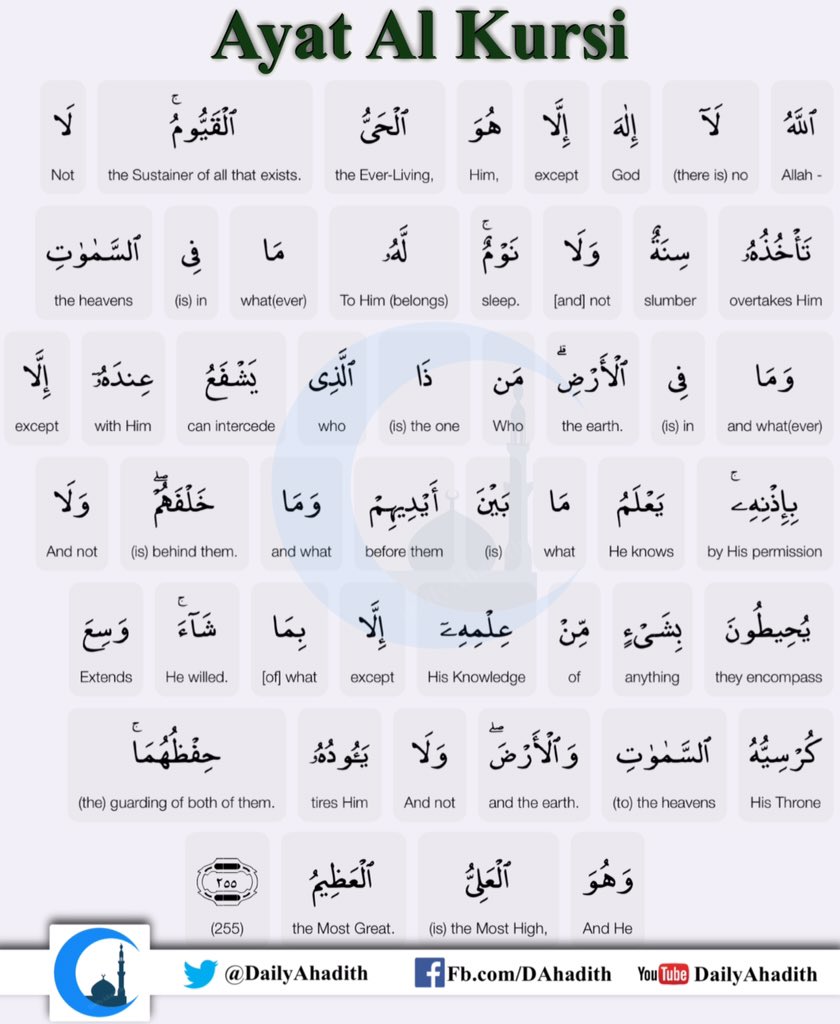 Ayat Al Kursi
ٱللَّهُ لَآ إِلَٰهَ إِلَّا هُوَ ٱلْحَىُّ ٱلْقَيُّومُ ۚ لَا
Allah - (there is) no God except Him, the Ever-Living, the Sustainer of all that exists. Not
تَأْخُذُهُۥ سِنَةٌ وَلَا نَوْمٌ ۚ لَّهُۥ مَا فِى ٱلسَّمَٰوَٰتِ
overtakes Him slumber [and] not sleep. To Him (belongs) what(ever) (is) in the heavens
وَمَا فِى ٱلْأَرْضِ ۗ مَن ذَا ٱلَّذِى يَشْفَعُ عِندَهُۥٓ إِلَّا
and what(ever) (is) in the earth. Who (is) the one who can intercede with Him except
بِإِذْنِهِۦ ۚ يَعْلَمُ مَا بَيْنَ أَيْدِيهِمْ وَمَا خَلْفَهُمْ ۖ وَلَا
by His permission He knows what (is) before them and what (is) behind them. And not
يُحِيطُونَ بِشَىْءٍ مِّنْ عِلْمِهِۦٓ إِلَّا بِمَا شَآءَ ۚ وَسِعَ
they encompass anything of His Knowledge except [of] what He willed. Extends
كُرْسِيُّهُ ٱلسَّمَٰوَٰتِ وَٱلْأَرْضَ ۖ وَلَا يَـُٔودُهُۥ حِفْظُهُمَا ۚ
His Throne (to) the heavens and the earth. And not tires Him (the) guarding of both of them.
وَهُوَ ٱلْعَلِىُّ ٱلْعَظِيمُ ٢٥٥
And He (is) the Most High, the Most Great. (255)
@DailyAhadith Fb.com/DAhadith YouTube DailyAhadith